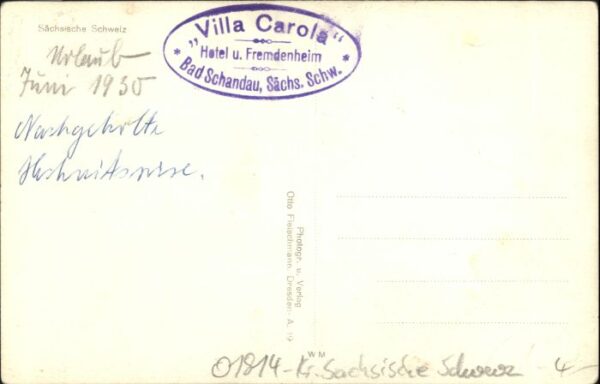 Sächsische Schweiz
Urlaub
Juni 1930
Nachgeholte
Hochzeitsreise.
„Villa Carola“
Hotel u. Fremdenheim
* Bad Schandau, Sächs. Schw. *
Photogr. u. Verlag
Otto Fleischmann, Dresden-A. 19
WM
01814-Kr. Sächsische Schweiz 4-